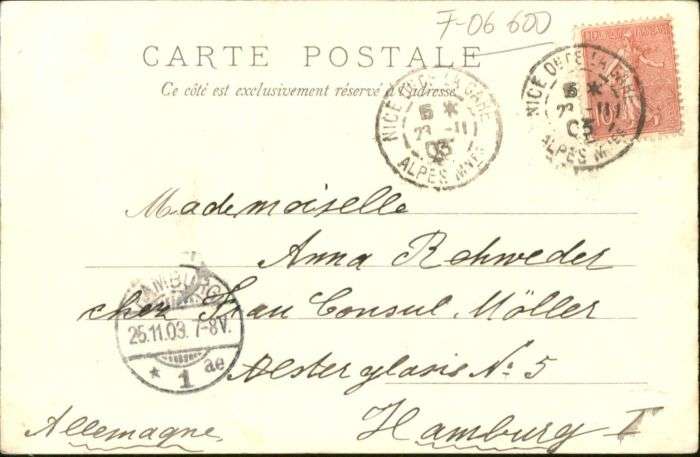 7-06 600
CARTE POSTALE
Ce côté est exclusivement réservé à l'adresse
NICE GARE
5 *
23 -11
03
ALPES MMES
NICE GARE
5 *
23 -11
03
ALPES MMES
10
Mademoiselle
Anna Rehweder
chez Frau Consul Möller
HAMBURG
25.11.03. 7-8V.
* 1 ae
No. 5
Allemagne
Hamburg I